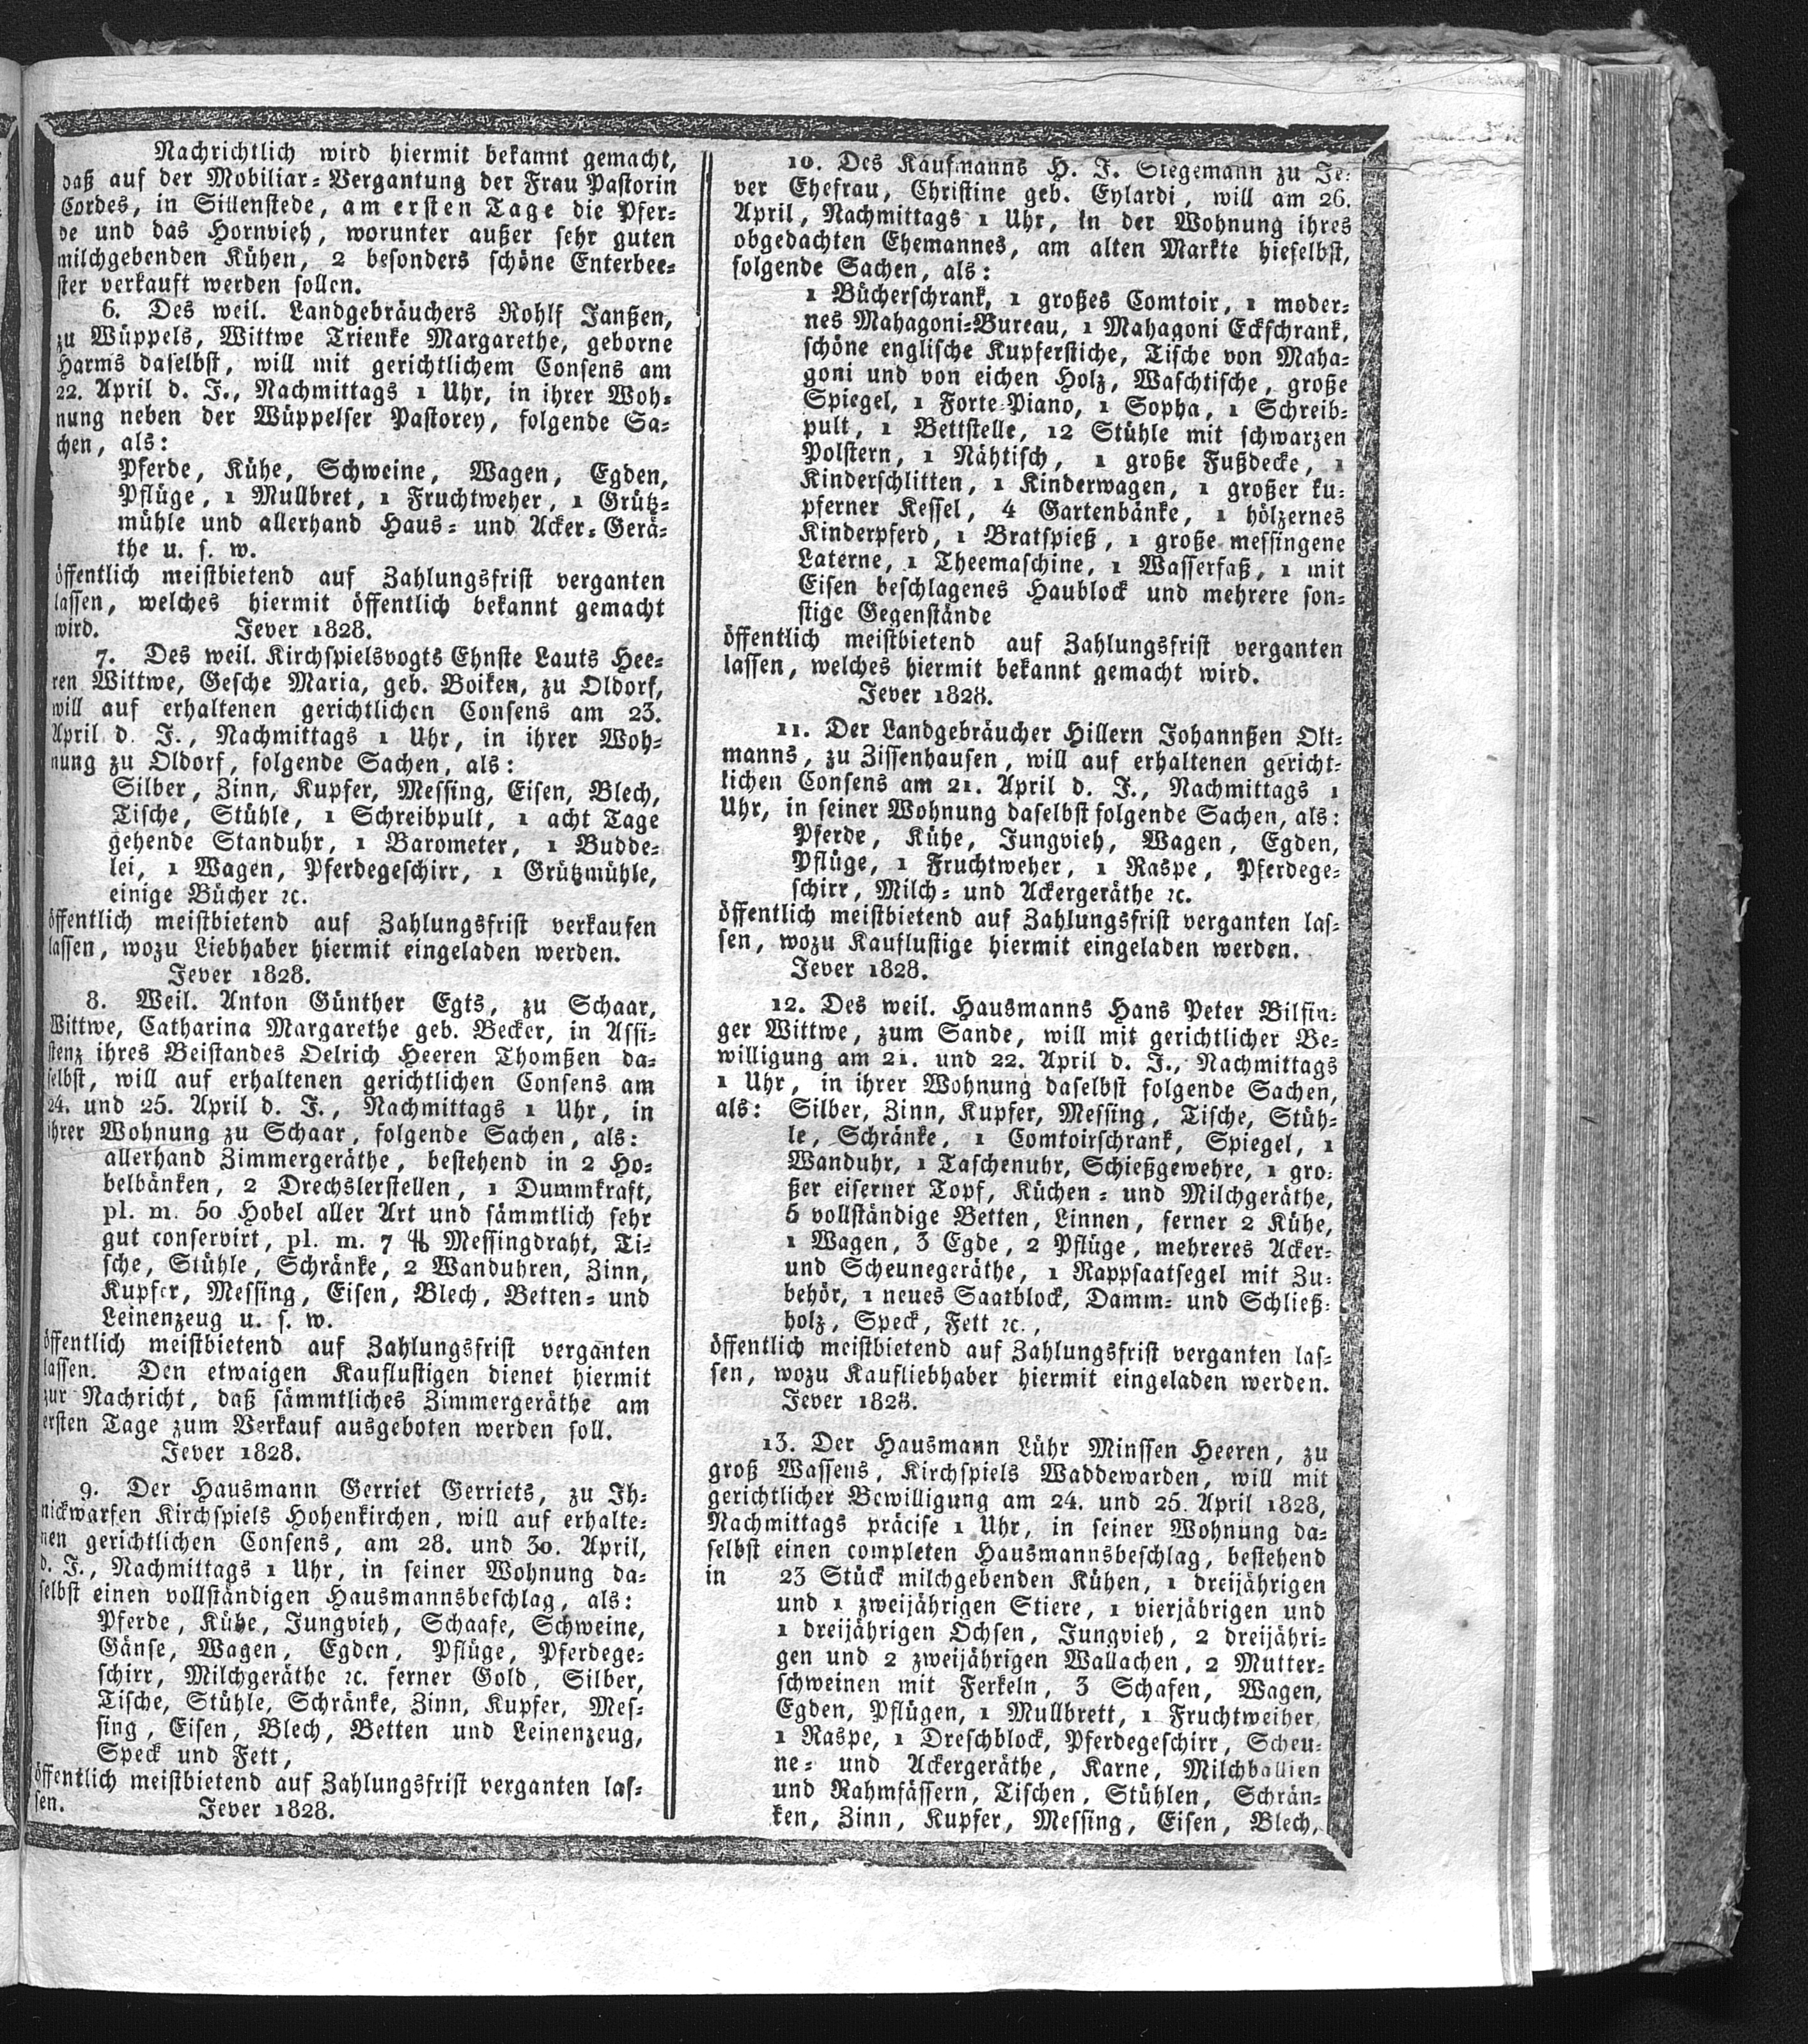 Nachrichtlich wird hiermit bekannt gemacht,
daß auf der Mobiliar-Vergantung der Frau Pastorin
Cordes, in Sillenstede, am ersten Tage die Pfer-
de und das Hornvieh, worunter außer sehr guten
milchgebenden Kühen, 2 besonders schöne Enterbee-
ster verkauft werden sollen.
6. Des weil. Landgebräuchers Rohlf Janßen,
zu Wüppels, Wittwe Trienke Margarethe, geborne
Harms daselbst, will mit gerichtlichem Consens am
22. April d. J., Nachmittags 1 Uhr, in ihrer Woh-
nung neben der Wüppelser Pastorey, folgende Sa-
chen, als:
Pferde, Kühe, Schweine, Wagen, Egden,
Pflüge, 1 Mullbret, 1 Fruchtweher, 1 Grütz-
mühle und allerhand Haus- und Acker-Gerä-
the u. s. w.
öffentlich meistbietend auf Zahlungsfrist verganten
lassen, welches hiermit öffentlich bekannt gemacht
wird. Jever 1828.
7. Des weil. Kirchspielsvogts Ehnste Lauts Hee-
ren Wittwe, Gesche Maria, geb. Boiken, zu Oldorf,
will auf erhaltenen gerichtlichen Consens am 23.
April d. J., Nachmittags 1 Uhr, in ihrer Woh-
nung zu Oldorf, folgende Sachen, als:
Silber, Zinn, Kupfer, Messing, Eisen, Blech,
Tische, Stühle, 1 Schreibpult, 1 acht Tage
gehende Standuhr, 1 Barometer, 1 Budde-
lei, 1 Wagen, Pferdegeschirr, 1 Grützmühle,
einige Bücher ꝛc.
öffentlich meistbietend auf Zahlungsfrist verkaufen
lassen, wozu Liebhaber hiermit eingeladen werden.
Jever 1828.
8. Weil. Anton Günther Egts, zu Schaar,
Wittwe, Catharina Margarethe geb. Becker, in Assi-
stenz ihres Beistandes Oelrich Heeren Thomßen da-
selbst, will auf erhaltenen gerichtlichen Consens am
24. und 25. April d. J., Nachmittags 1 Uhr, in
ihrer Wohnung zu Schaar, folgende Sachen, als:
allerhand Zimmergeräthe, bestehend in 2 Ho-
belbänken, 2 Drechslerstellen, 1 Dummkraft,
pl. m. 50 Hobel aller Art und sämmtlich sehr
gut conservirt, pl. m. 7 ℔ Messingdraht, Ti-
sche, Stühle, Schränke, 2 Wanduhren, Zinn,
Kupfer, Messing, Eisen, Blech, Betten- und
Leinenzeug u. s. w.
öffentlich meistbietend auf Zahlungsfrist verganten
lassen. Den etwaigen Kauflustigen dienet hiermit
zur Nachricht, daß sämmtliches Zimmergeräthe am
ersten Tage zum Verkauf ausgeboten werden soll.
Jever 1828.
9. Der Hausmann Gerriet Gerriets, zu Ih-
nickwarfen Kirchspiels Hohenkirchen, will auf erhalte-
nen gerichtlichen Consens, am 28. und 30. April,
d. J., Nachmittags 1 Uhr, in seiner Wohnung da-
selbst einen vollständigen Hausmannsbeschlag, als:
Pferde, Kühe, Jungvieh, Schaafe, Schweine,
Gänse, Wagen, Egden, Pflüge, Pferdege-
schirr, Milchgeräthe ꝛc. ferner Gold, Silber,
Tische, Stühle, Schränke, Zinn, Kupfer, Mes-
sing, Eisen, Blech, Betten und Leinenzeug,
Speck und Fett,
öffentlich meistbietend auf Zahlungsfrist verganten las-
sen. Jever 1828.
10. Des Kaufmanns H. J. Stegemann zu Je-
ver Ehefrau, Christine geb. Eylardi, will am 26.
April, Nachmittags 1 Uhr, in der Wohnung ihres
obgedachten Ehemannes, am alten Markte hieselbst,
folgende Sachen, als:
1 Bücherschrank, 1 großes Comtoir, 1 moder-
nes Mahagoni-Bureau, 1 Mahagoni Eckschrank,
schöne englische Kupferstiche, Tische von Maha-
goni und von eichen Holz, Waschtische, große
Spiegel, 1 Forte-Piano, 1 Sopha, 1 Schreib-
pult, 1 Bettstelle, 12 Stühle mit schwarzen
Polstern, 1 Nähtisch, 1 große Fußdecke, 1
Kinderschlitten, 1 Kinderwagen, 1 großer ku-
pferner Kessel, 4 Gartenbänke, 1 hölzernes
Kinderpferd, 1 Bratspieß, 1 große messingene
Laterne, 1 Theemaschine, 1 Wasserfaß, 1 mit
Eisen beschlagenes Haublock und mehrere son-
stige Gegenstände
öffentlich meistbietend auf Zahlungsfrist verganten
lassen, welches hiermit bekannt gemacht wird.
Jever 1828.
11. Der Landgebräucher Hillern Johannßen Olt-
manns, zu Zissenhausen, will auf erhaltenen gericht-
lichen Consens am 21. April d. J., Nachmittags 1
Uhr, in seiner Wohnung daselbst folgende Sachen, als:
Pferde, Kühe, Jungvieh, Wagen, Egden,
Pflüge, 1 Fruchtweher, 1 Raspe, Pferdege-
schirr, Milch- und Ackergeräthe ꝛc.
öffentlich meistbietend auf Zahlungsfrist verganten las-
sen, wozu Kauflustige hiermit eingeladen werden.
Jever 1828.
12. Des weil. Hausmanns Hans Peter Bilfin-
ger Wittwe, zum Sande, will mit gerichtlicher Be-
willigung am 21. und 22. April d. J., Nachmittags
1 Uhr, in ihrer Wohnung daselbst folgende Sachen,
als: Silber, Zinn, Kupfer, Messing, Tische, Stüh-
le, Schränke, 1 Comtoirschrank, Spiegel, 1
Wanduhr, 1 Taschenuhr, Schießgewehre, 1 gro-
ßer eiserner Topf, Küchen- und Milchgeräthe,
5 vollständige Betten, Linnen, ferner 2 Kühe,
1 Wagen, 3 Egde, 2 Pflüge, mehreres Acker-
und Scheunegeräthe, 1 Rappsaatsegel mit Zu-
behör, 1 neues Saatblock, Damm- und Schließ-
holz, Speck, Fett ꝛc.,
öffentlich meistbietend auf Zahlungsfrist verganten las-
sen, wozu Kaufliebhaber hiermit eingeladen werden.
Jever 1828.
13. Der Hausmann Lühr Minssen Heeren, zu
groß Wassens, Kirchspiels Waddewarden, will mit
gerichtlicher Bewilligung am 24. und 25. April 1828,
Nachmittags präcise 1 Uhr, in seiner Wohnung da-
selbst einen completen Hausmannsbeschlag, bestehend
in 23 Stück milchgebenden Kühen, 1 dreijährigen
und 1 zweijährigen Stiere, 1 vierjährigen und
1 dreijährigen Ochsen, Jungvieh, 2 dreijähri-
gen und 2 zweijährigen Wallachen, 2 Mutter-
schweinen mit Ferkeln, 3 Schafen, Wagen,
Egden, Pflügen, 1 Mullbrett, 1 Fruchtweiher,
1 Raspe, 1 Dreschblock, Pferdegeschirr, Scheu-
ne- und Ackergeräthe, Karne, Milchballien
und Rahmfässern, Tischen, Stühlen, Schrän-
ken, Zinn, Kupfer, Messing, Eisen, Blech,